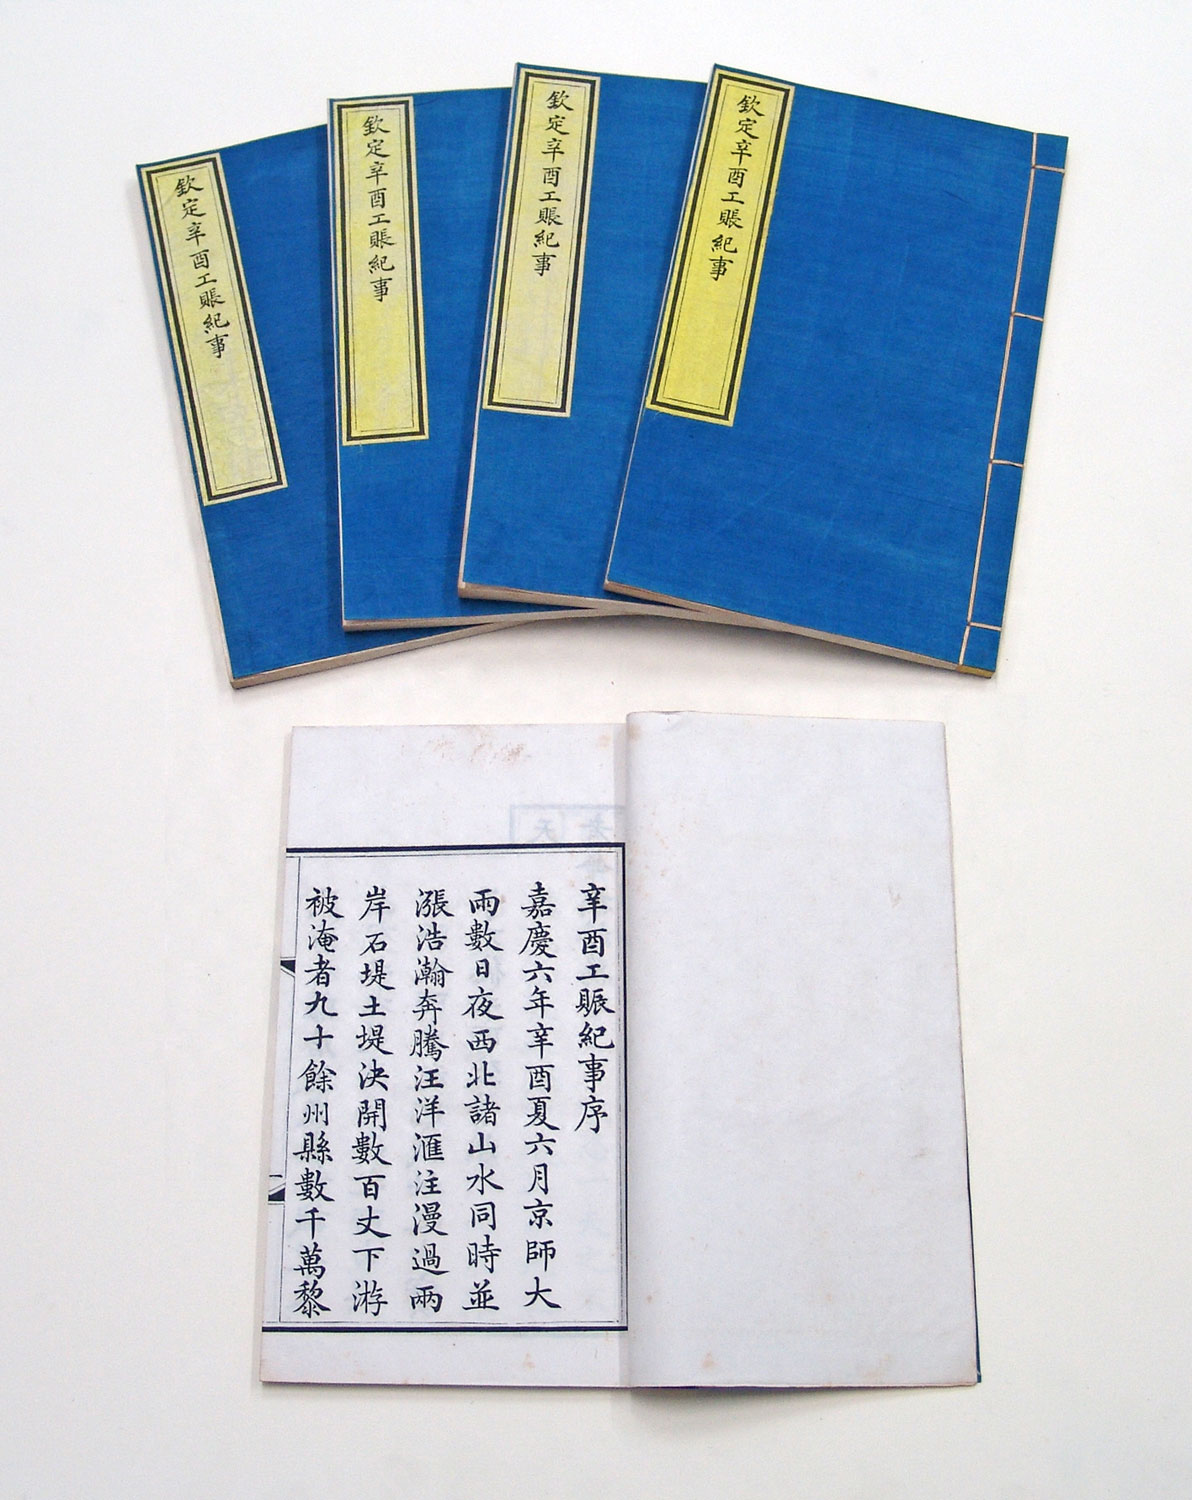 欽定辛酉工賬紀事
欽定辛酉工賬紀事
欽定辛酉工賬紀事
欽定辛酉工賬紀事
辛酉工賑紀事序
嘉慶六年辛酉夏六月京師大
雨數日夜西北諸山水同時並
漲浩瀚奔騰汪洋滙注漫過兩
岸石堤土堤決開數百丈下游
被淹者九十餘州縣數千萬黎